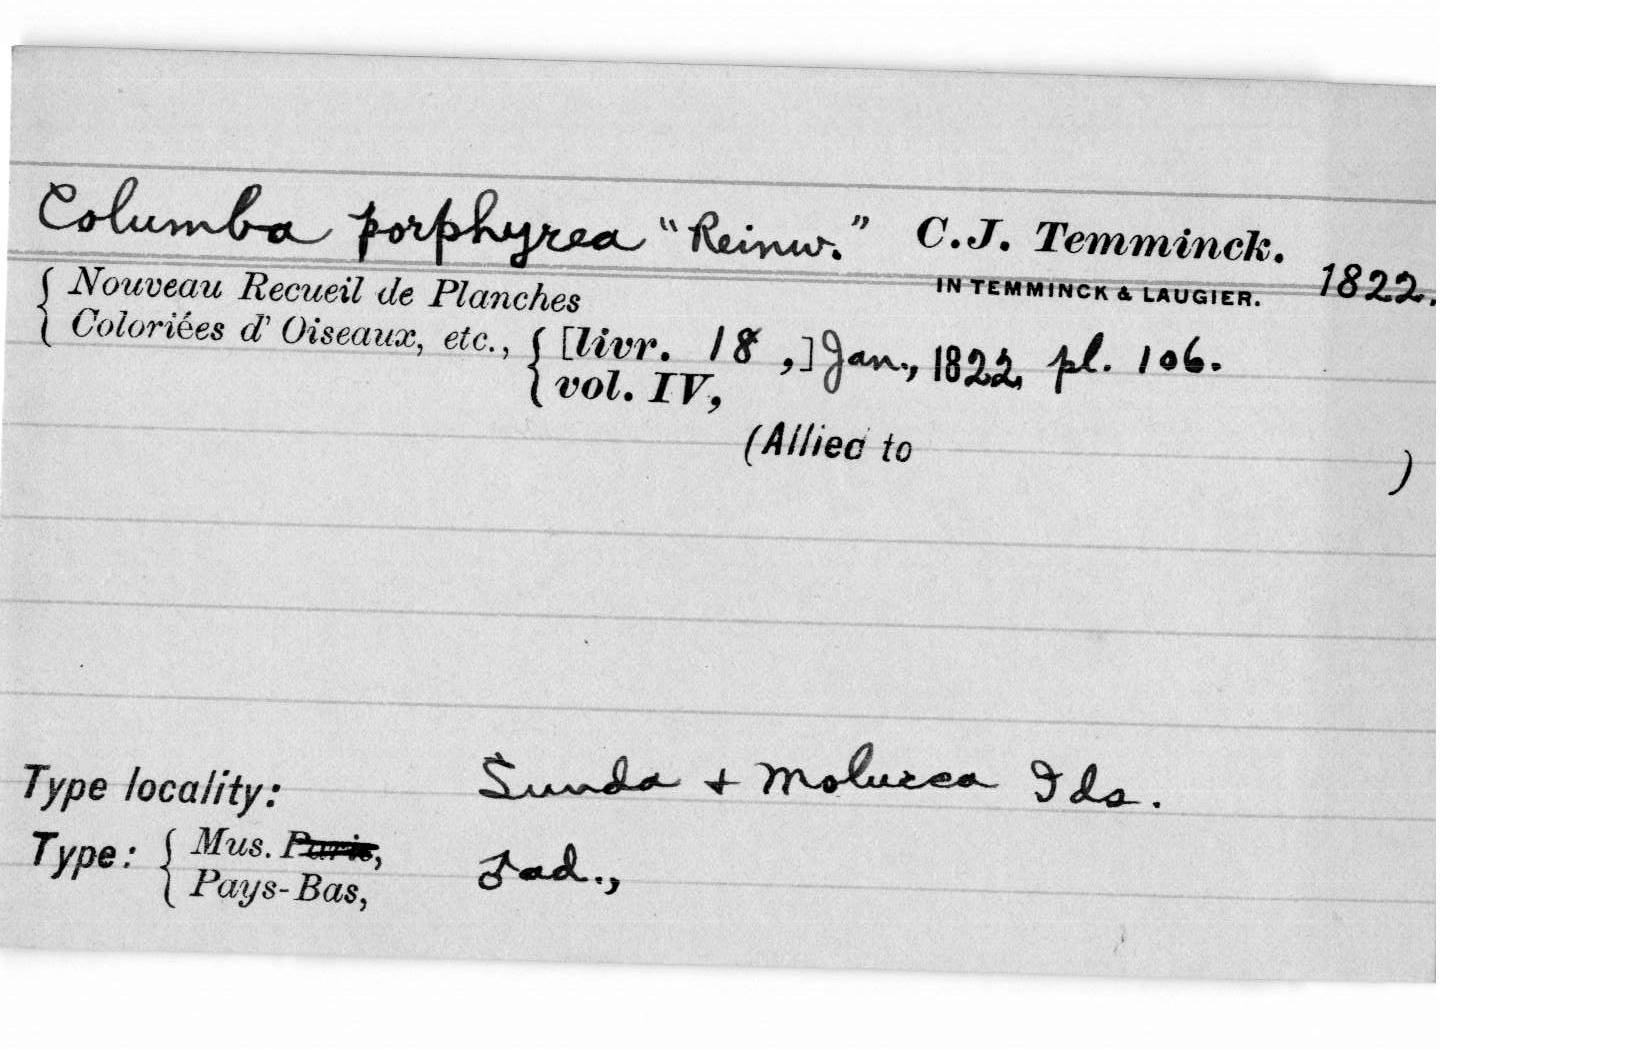 Columba porphyrea "Reinw." C.J. Temminck.
IN TEMMINCK & LAUGIER. 1822.
{ Nouveau Recueil de Planches
{ Coloriées d' Oiseaux, etc., { [livr. 18 ,] Jan., 1822, pl. 106.
{ vol. IV,
(Allied to )
Type locality: Sunda + Molucca Ids.
Type: { Mus. Paris, ♂ ad.,
{ Pays-Bas,